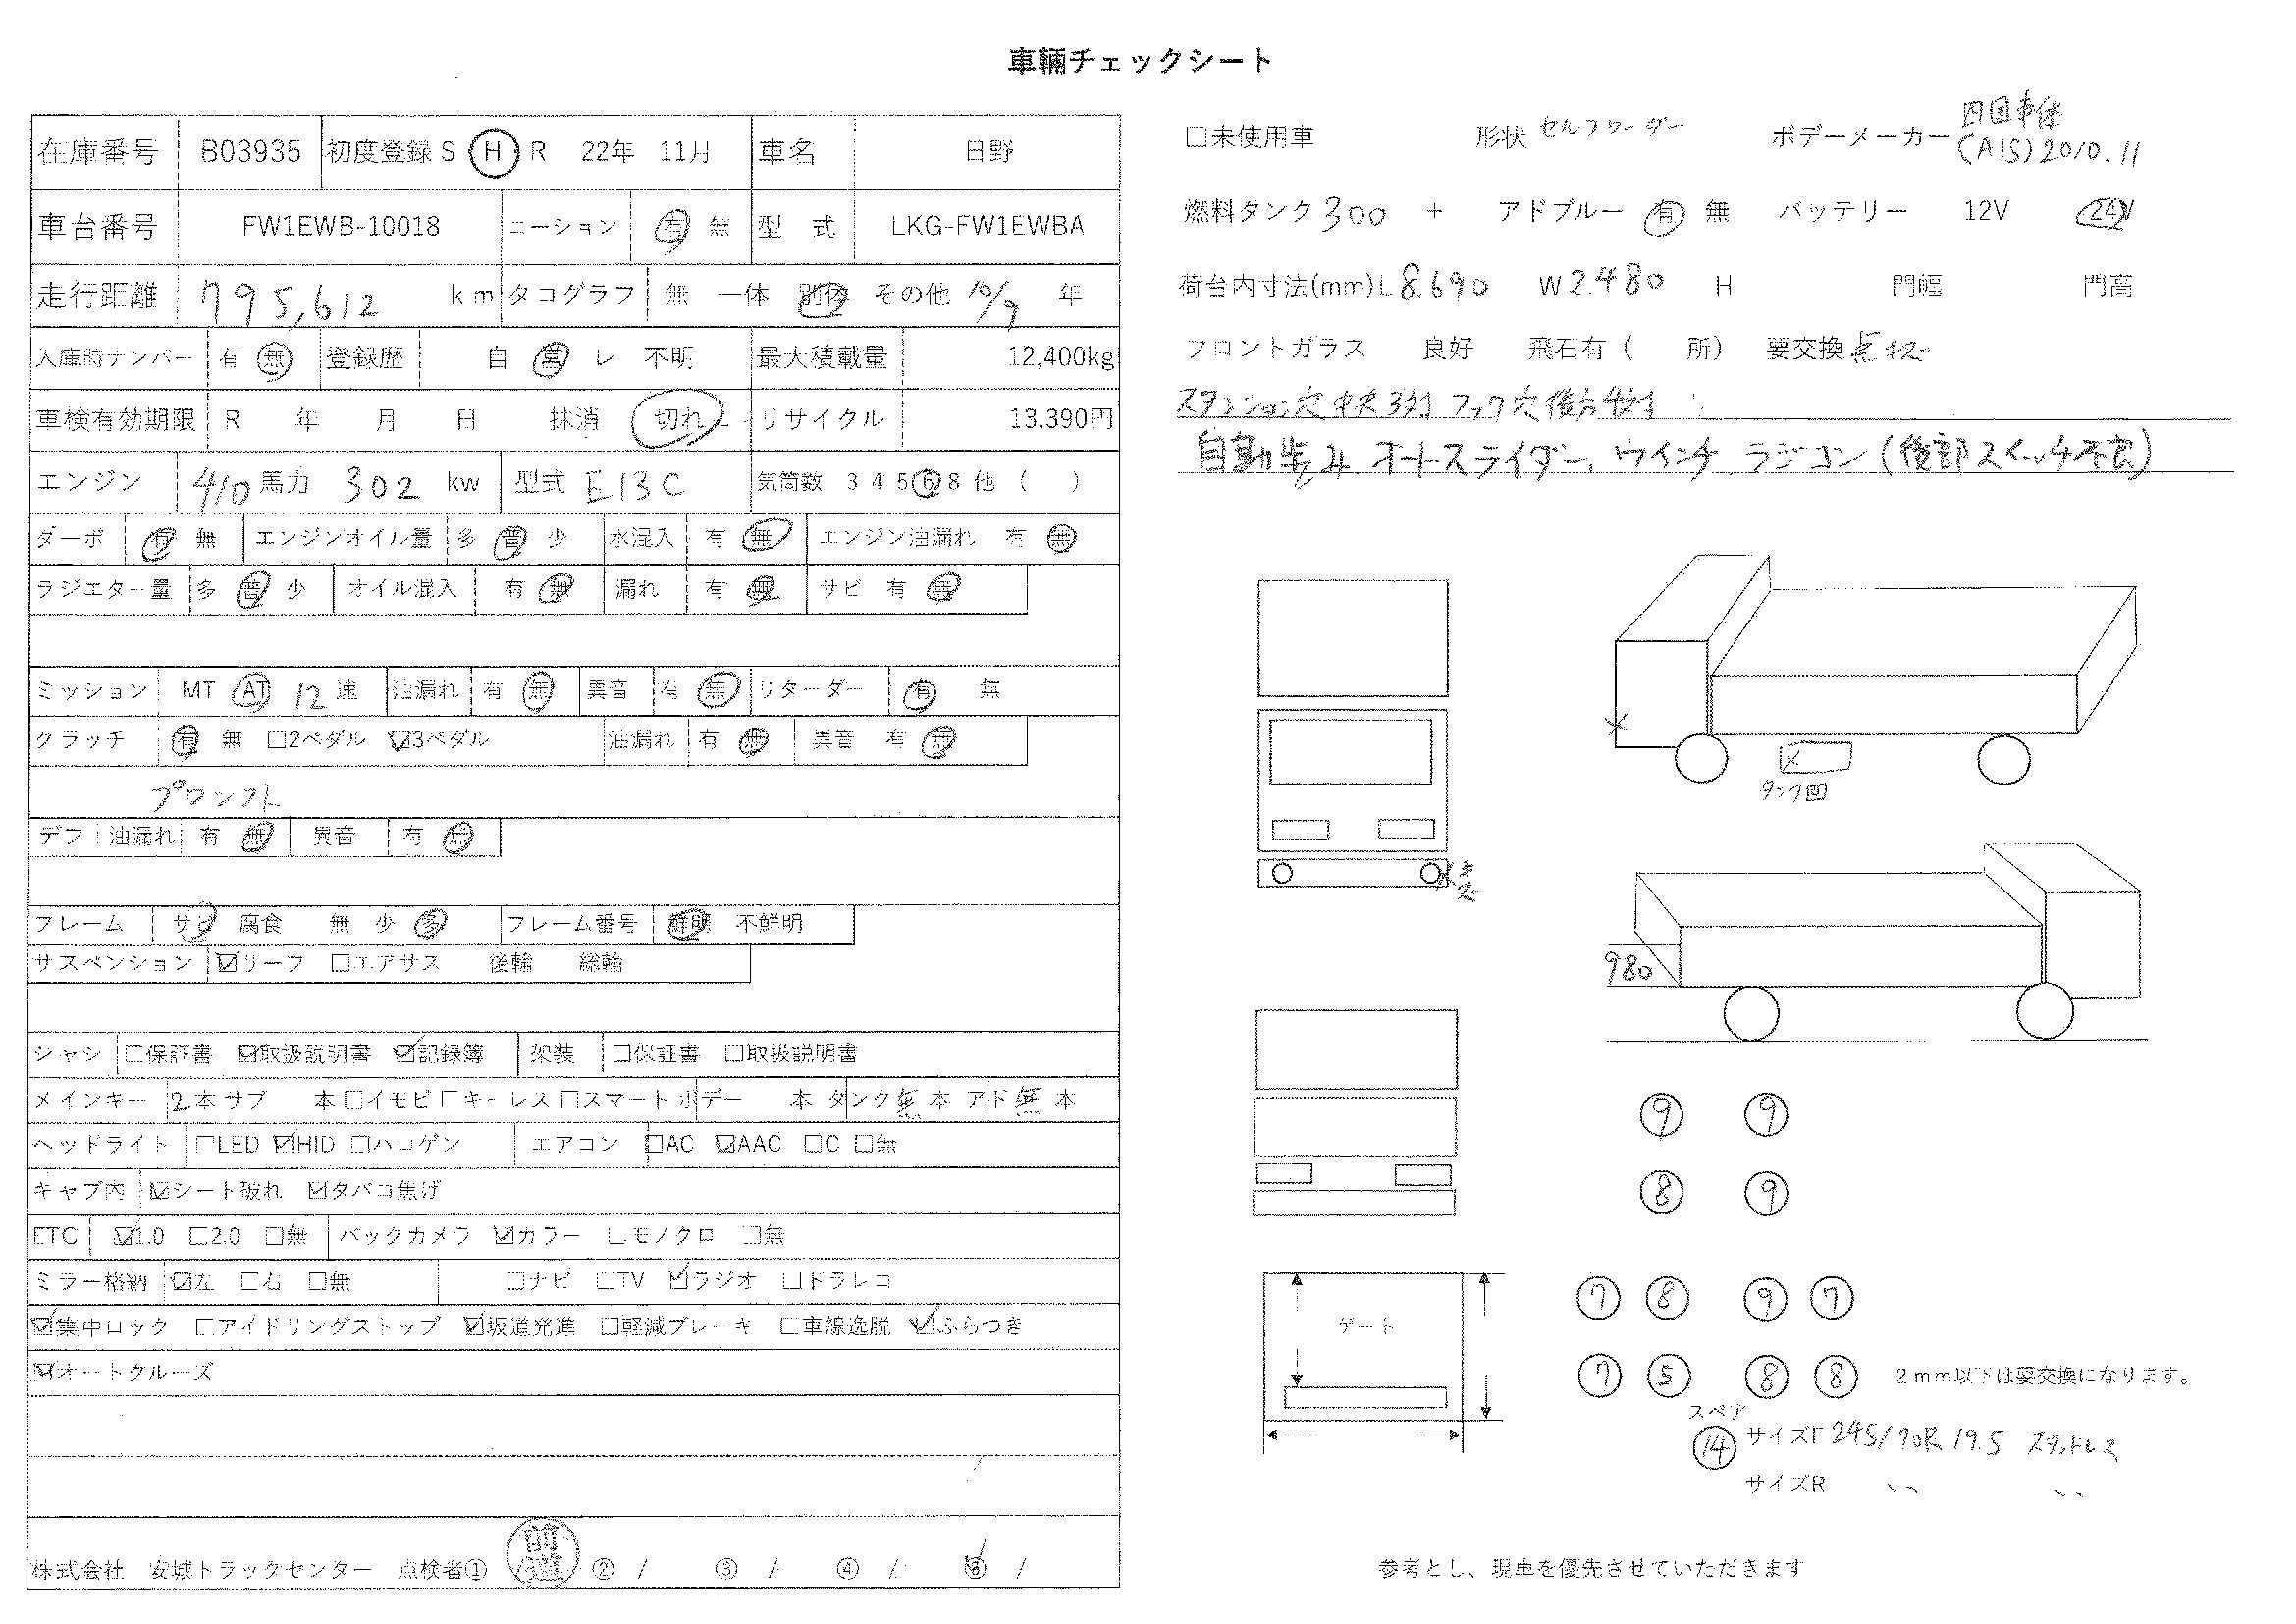 車輛チェックシート
在庫番号 B03935 初度登録 S H R 22年 11月 車名 日野
車台番号 FW1EWB-10018 ニーション 有 無 型 式 LKG-FW1EWBA
走行距離 795,612 km タコグラフ 無 一体 別体 その他 10/9 年
入庫時ナンバー 有 無 登録歴 自 営 レ 不明 最大積載量 12,400kg
車検有効期限 R 年 月 日 抹消 切れ リサイクル 13.390円
エンジン 410 馬力 302 kw 型式 E13C 気筒数 3 4 5 6 8 他 ( )
ターボ 有 無 エンジンオイル量 多 普 少 水混入 有 無 エンジン油漏れ 有 無
ラジエター量 多 普 少 オイル混入 有 無 漏れ 有 無 サビ 有 無
ミッション MT AT 12 速 油漏れ 有 無 異音 有 無 リターダー 有 無
クラッチ 有 無 □2ペダル ☑3ペダル 油漏れ 有 無 異音 有 無
プロシフト
デフ 油漏れ 有 無 異音 有 無
フレーム サビ 腐食 無 少 多 フレーム番号 鮮明 不鮮明
サスペンション ☑リーフ □エアサス 後輪 総輪
シャシ □保証書 ☑取扱説明書 ☑記録簿 架装 □保証書 □取扱説明書
メインキー 2本 サブ 本 □イモビ □キーレス □スマート ボデー 本 タンク 無 本 アド 無 本
ヘッドライト □LED ☑HID □ハロゲン エアコン □AC ☑AAC □C □無
キャブ内 ☑シート破れ ☑タバコ焦げ
ETC ☑1.0 □2.0 □無 バックカメラ ☑カラー □モノクロ □無
ミラー格納 ☑左 □右 □無 □ナビ □TV ☑ラジオ □ドラレコ
☑集中ロック □アイドリングストップ ☑坂道発進 □軽減ブレーキ □車線逸脱 ☑ふらつき
☑オートクルーズ
株式会社 安城トラックセンター 点検者① ② / ③ / ④ / ⑤ /
□未使用車 形状 セルフローダー ボデーメーカー 四国車体
(AIS)2010.11
燃料タンク 300 + アドブルー 有 無 バッテリー 12V 24V
荷台内寸法(mm) L 8.690 W 2.480 H 門幅 門高
フロントガラス 良好 飛石有 ( 所) 要交換
スタンション穴 中央3対 フック穴 後方4対
自動歩み オートスライダー、ウインチ ラジコン(後部スイッチ不良)
タンク凹
980
⑨ ⑨
⑧ ⑨
⑦ ⑧ ⑨ ⑦
⑦ ⑤ ⑧ ⑧ 2mm以下は要交換になります。
ゲート
スペア
⑭ サイズF 245/70R 19.5 スタットレス
サイズR 〃 〃
参考とし、現車を優先させていただきます